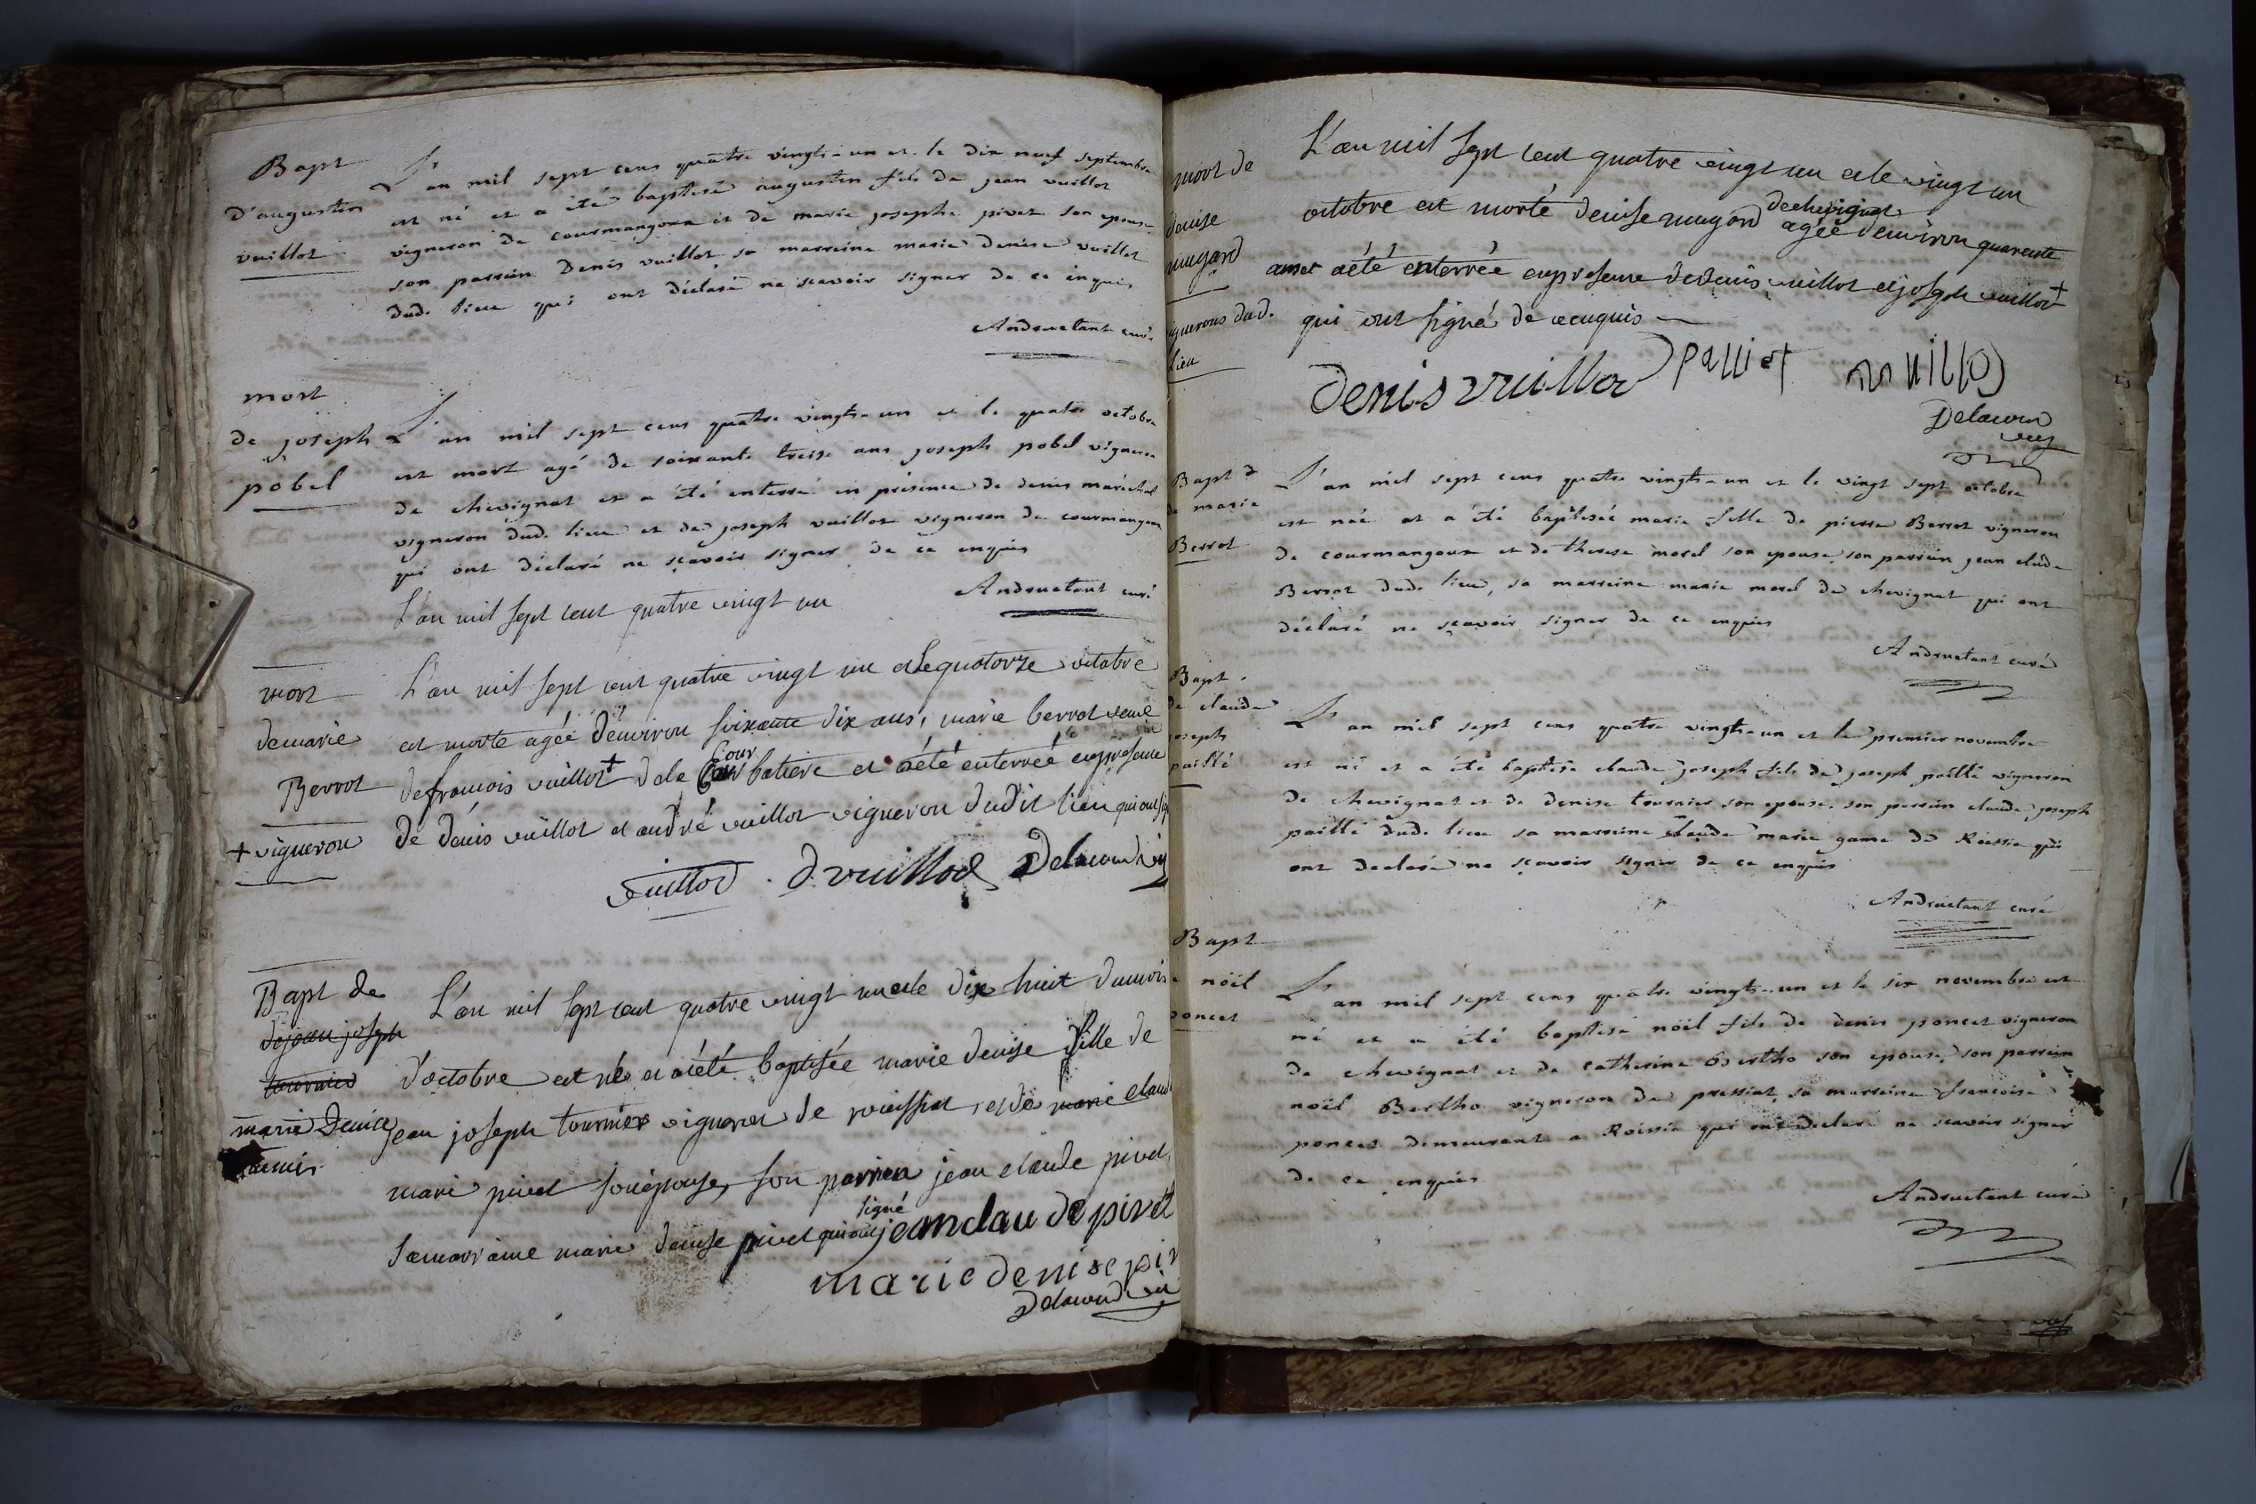 Bapt
D'augustin
vuillot
L'an mil sept cens quatre vingts-un et le dix neuf septembre
est né et a été baptisé augustin fils de jean vuillot
vigneron de courmangoux et de marie josephe pivet son epouse
son parrein Denis vuillot, sa marreine marie denise vuillot
dud. lieu qui ont déclaré ne scavoir signer de ce enquis
Andruetant curé
mort
de joseph
pobel
L'an mil sept cens quatre vingts-un et le quatre octobre
est mort agé de soixante treize ans joseph pobel vigneron
de chevignat et a été enterré en présence de denis maréchal
vigneron dud. lieu et de joseph vuillot vigneron de courmangoux
qui ont déclaré ne sçavoir signer de ce enquis
Andruetant curé
L'an mil sept cent quatre vingt un
mort
de marie
Berrot
+ vigneron
L'an mil sept cent quatre vingt un et le quatorze octobre
est morte agéé d'environ soixante dix ans, marie berrot veuve
de francois vuillot + de la Cour batiere et a été enterréé en presence
de dénis vuillot et andré vuillot vigneron dudit lieu qui ont signé
vuillod . D vuillod Delacour vic
Bapt de
de jean joseph
tournier
marie Denise
tournier
L'an mil sept cent quatre vingt un et le dix huit du mois
d'octobre est née et a été baptisée marie denise fille de
jean joseph tournier vigneron de roissiat, et de marie claud
marie pivet son épouse, son parrien jean claude pivet,
sa marraine marie denise pivet qui ont signé jean clau de pivet
marie denise piv
Delacour vic
mort de
denise
mugard
vignerons dud.
lieu
L'an mil sept cent quatre vingt un et le vingt un
octobre est morte denise mugard de chevignat agéé d'environ quarente
ans et a été enterréé en presence de Denis vuillot et joseph vuillot +
qui ont signé de ce enquis
Denis vuillod palliet vuillod
Delacour
vic
Bapt
de marie
Berrot
L'an mil sept cens quatre vingts-un et le vingt sept octobre
est née et a été baptisée marie fille de pierre Berrot vigneron
de courmangoux et de therese morel son epouse, son parrein jean claude
Berrot dud. lieu, sa marreine marie morel de chevignat qui ont
déclaré ne sçavoir signer de ce enquis
Andruetant curé
Bapt.
de claude
joseph
paillé
L'an mil sept cens quatre vingts-un et le premier novembre
est né et a été baptisé claude joseph fils de joseph paillé vigneron
de chevignat et de denise tournier son epouse, son parrein claude joseph
paillé dud. lieu sa marreine claude marie game de Roissia qui
ont declaré ne sçavoir signer de ce enquis
Andruetant curé
Bapt
de nöil
poncet
L'an mil sept cens quatre vingts-un et le six novembre est
né et a été baptisé nöil fils de denis poncet vigneron
de chevignat et de catherine Bertho son epouse, son parrein
noël Bertho vigneron de pressiat, sa marreine francoise
poncet demeurant a Roissia qui ont declaré ne scavoir signer
de ce enquis
Andruetant curé